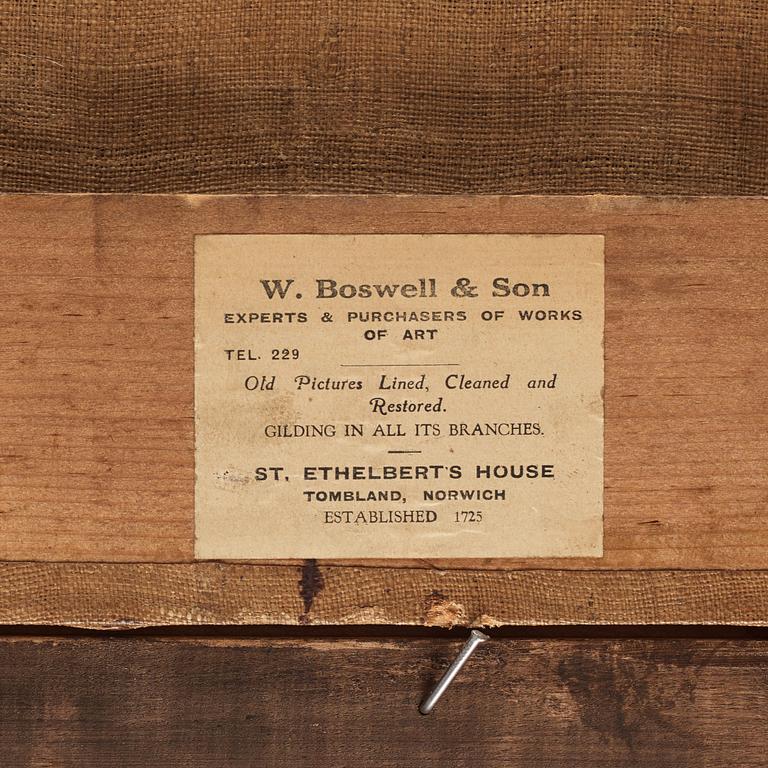 W. Boswell & Son
EXPERTS & PURCHASERS OF WORKS
OF ART
TEL. 229
Old Pictures Lined, Cleaned and
Restored.
GILDING IN ALL ITS BRANCHES.
ST. ETHELBERT'S HOUSE
TOMBLAND, NORWICH
ESTABLISHED 1725